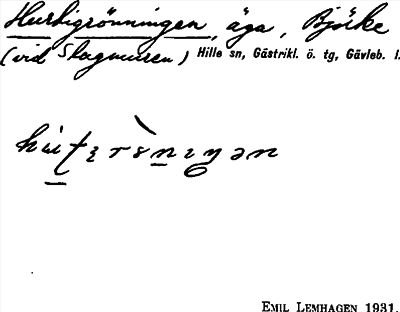 Hurbigrönningen, äga, Björke
(vid Slagmuren) Hille sn, Gästrikl. ö. tg, Gävleb. l.
EMIL LEMHAGEN 1931.